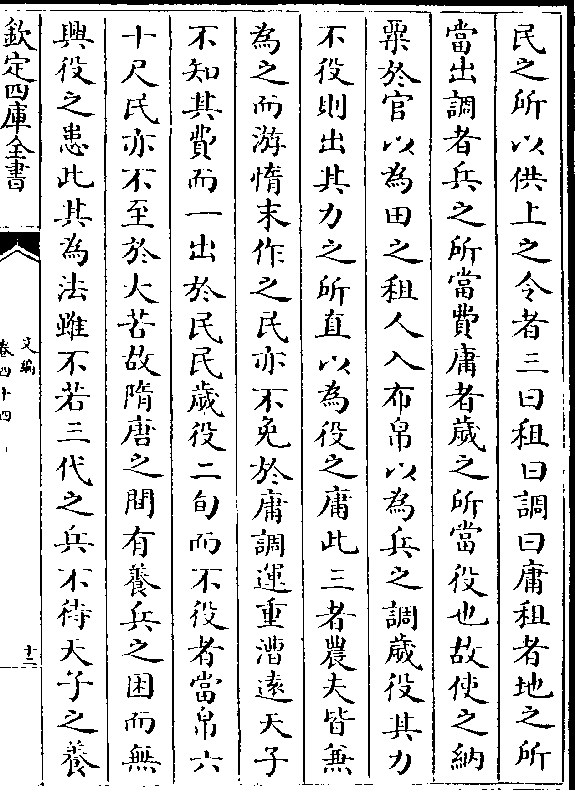 民之所以供上之令者三曰租曰調曰庸租者地之所
當出調者兵之所當費庸者歲之所當役也故使之納
粟於官以為田之租人入布帛以為兵之調歲役其力
不役則出其力之所直以為役之庸此三者農夫皆兼
為之而游惰末作之民亦不免於庸調運重漕遠天子
不知其費而一出於民民歲役二旬而不役者當帛六
十尺民亦不至於大苦故隋唐之間有養兵之困而無
興役之患此其為法雖不若三代之兵不待天子之養
欽定四庫全書
文編
卷四十四
十二